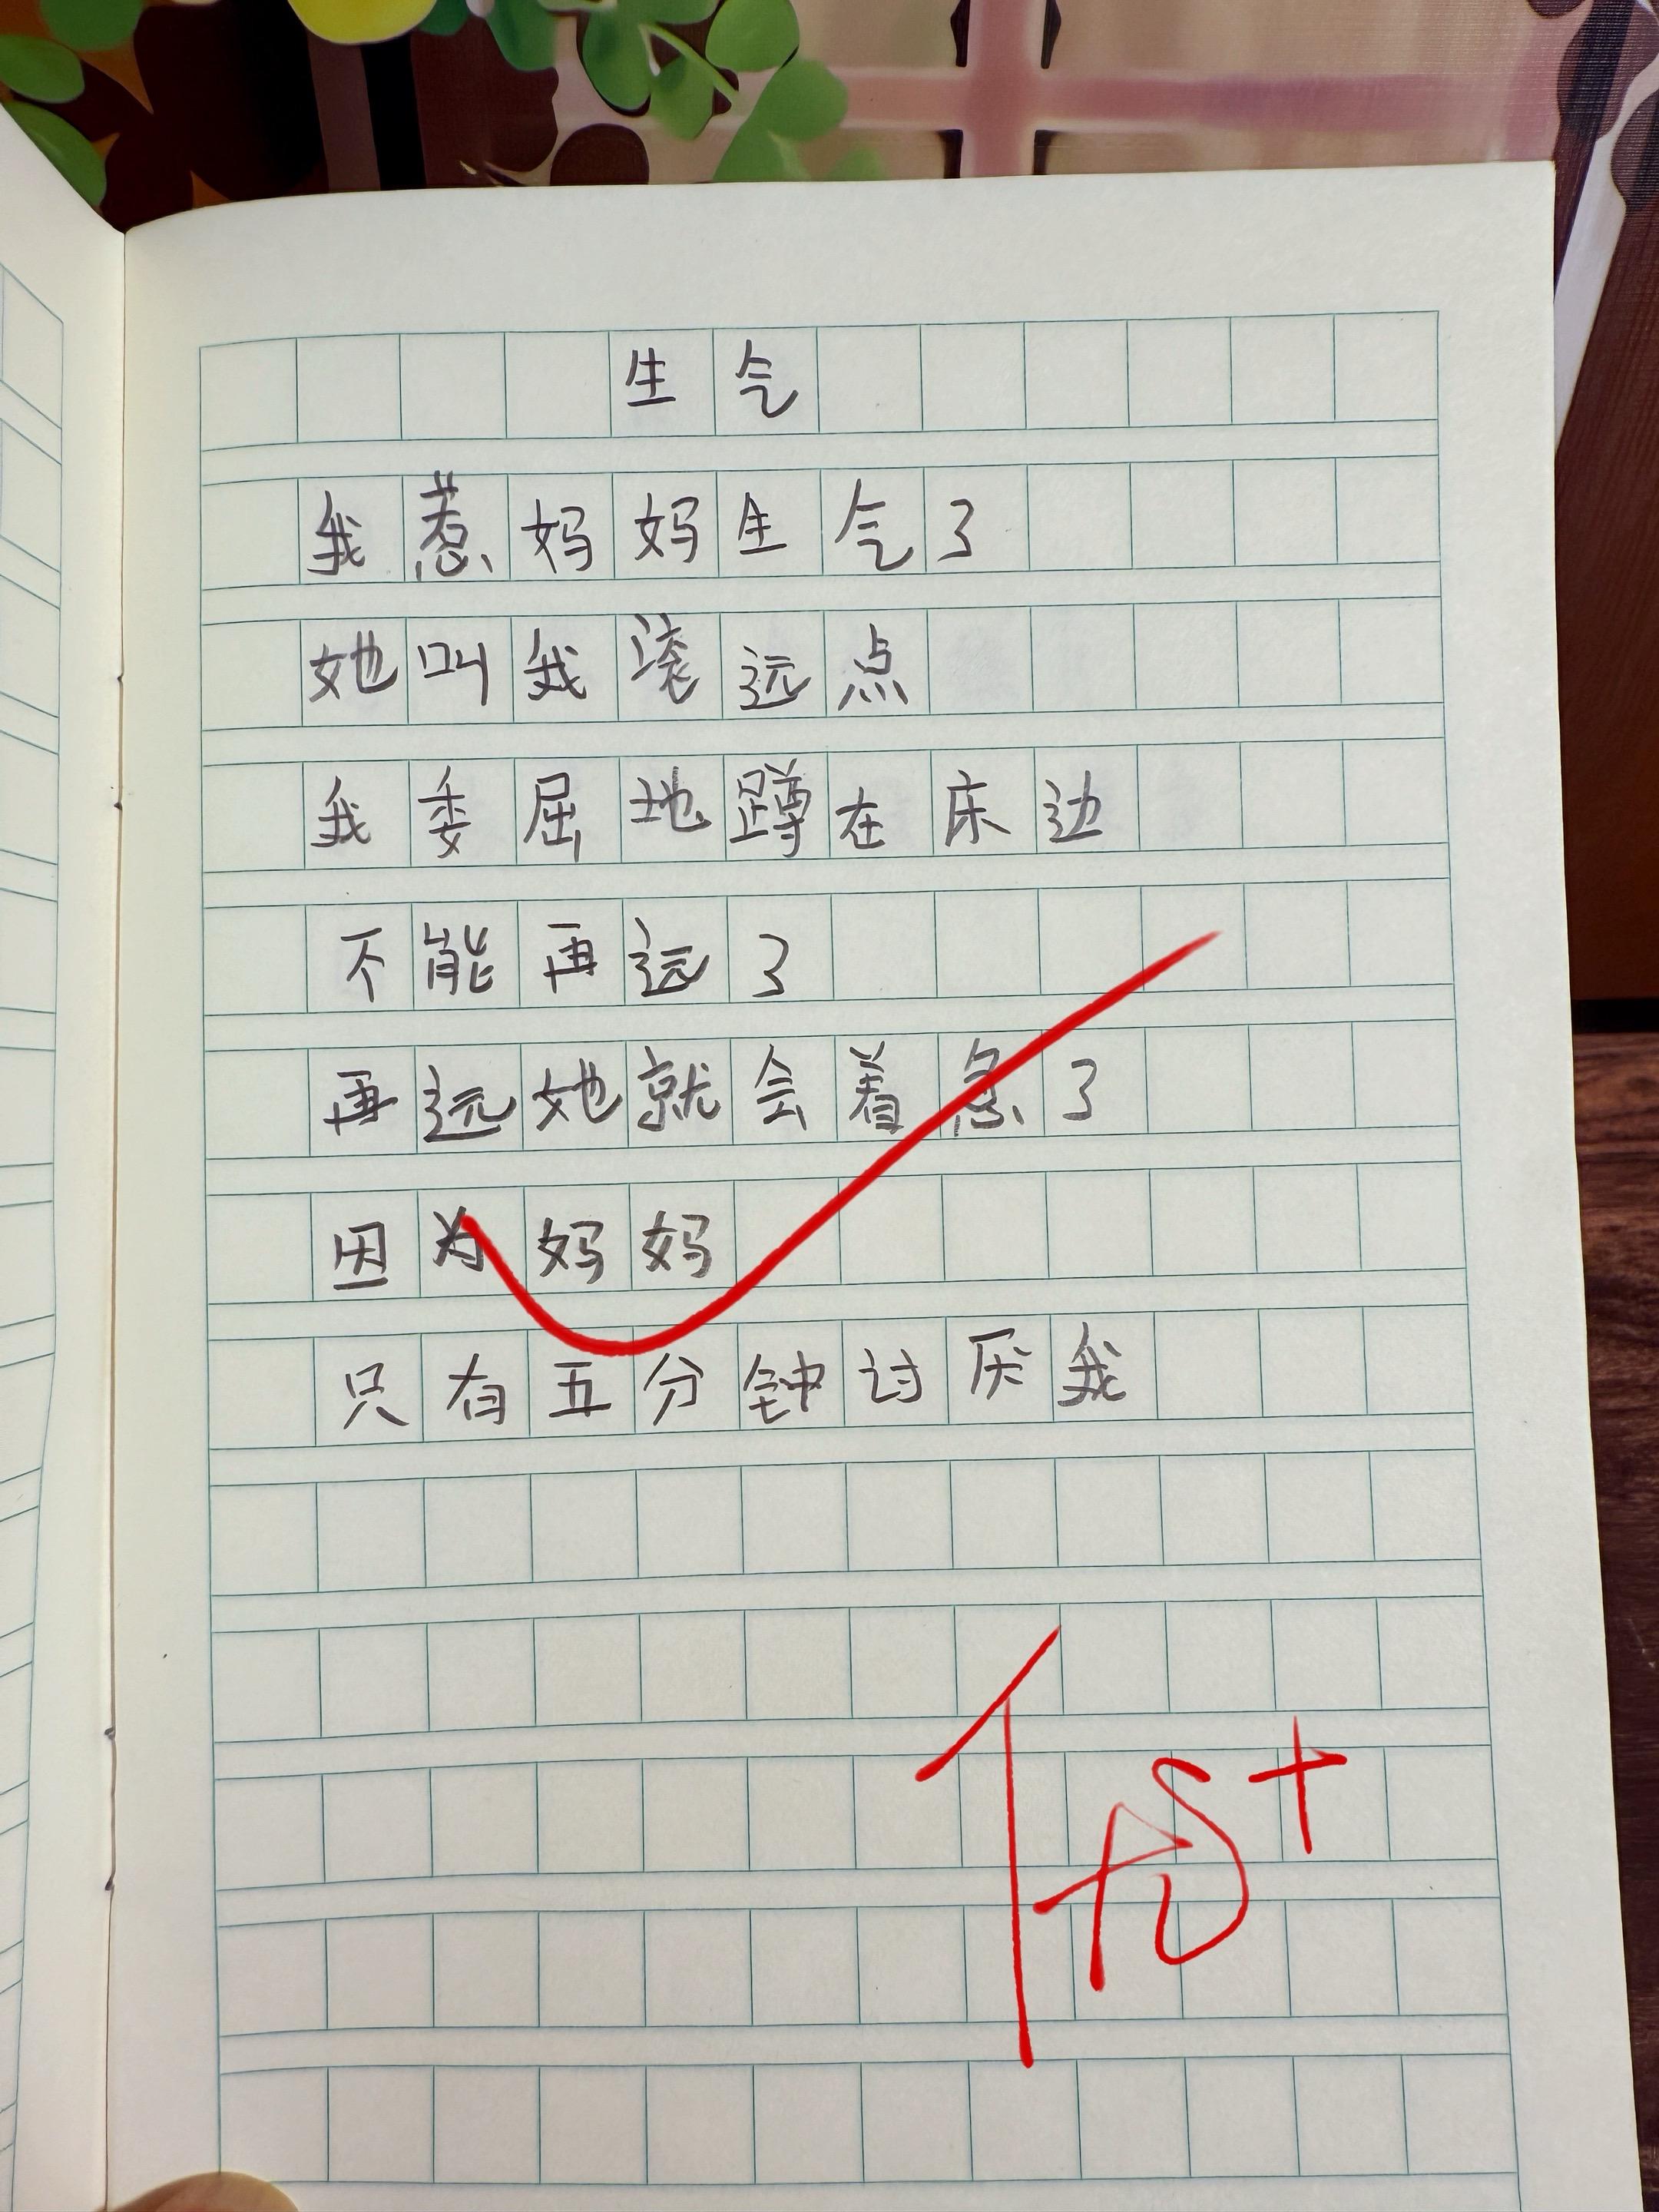 生气
我惹妈妈生气了
她叫我滚远点
我委屈地蹲在床边
不能再远了
再远她就会着急了
因为妈妈
只有五分钟讨厌我
优+